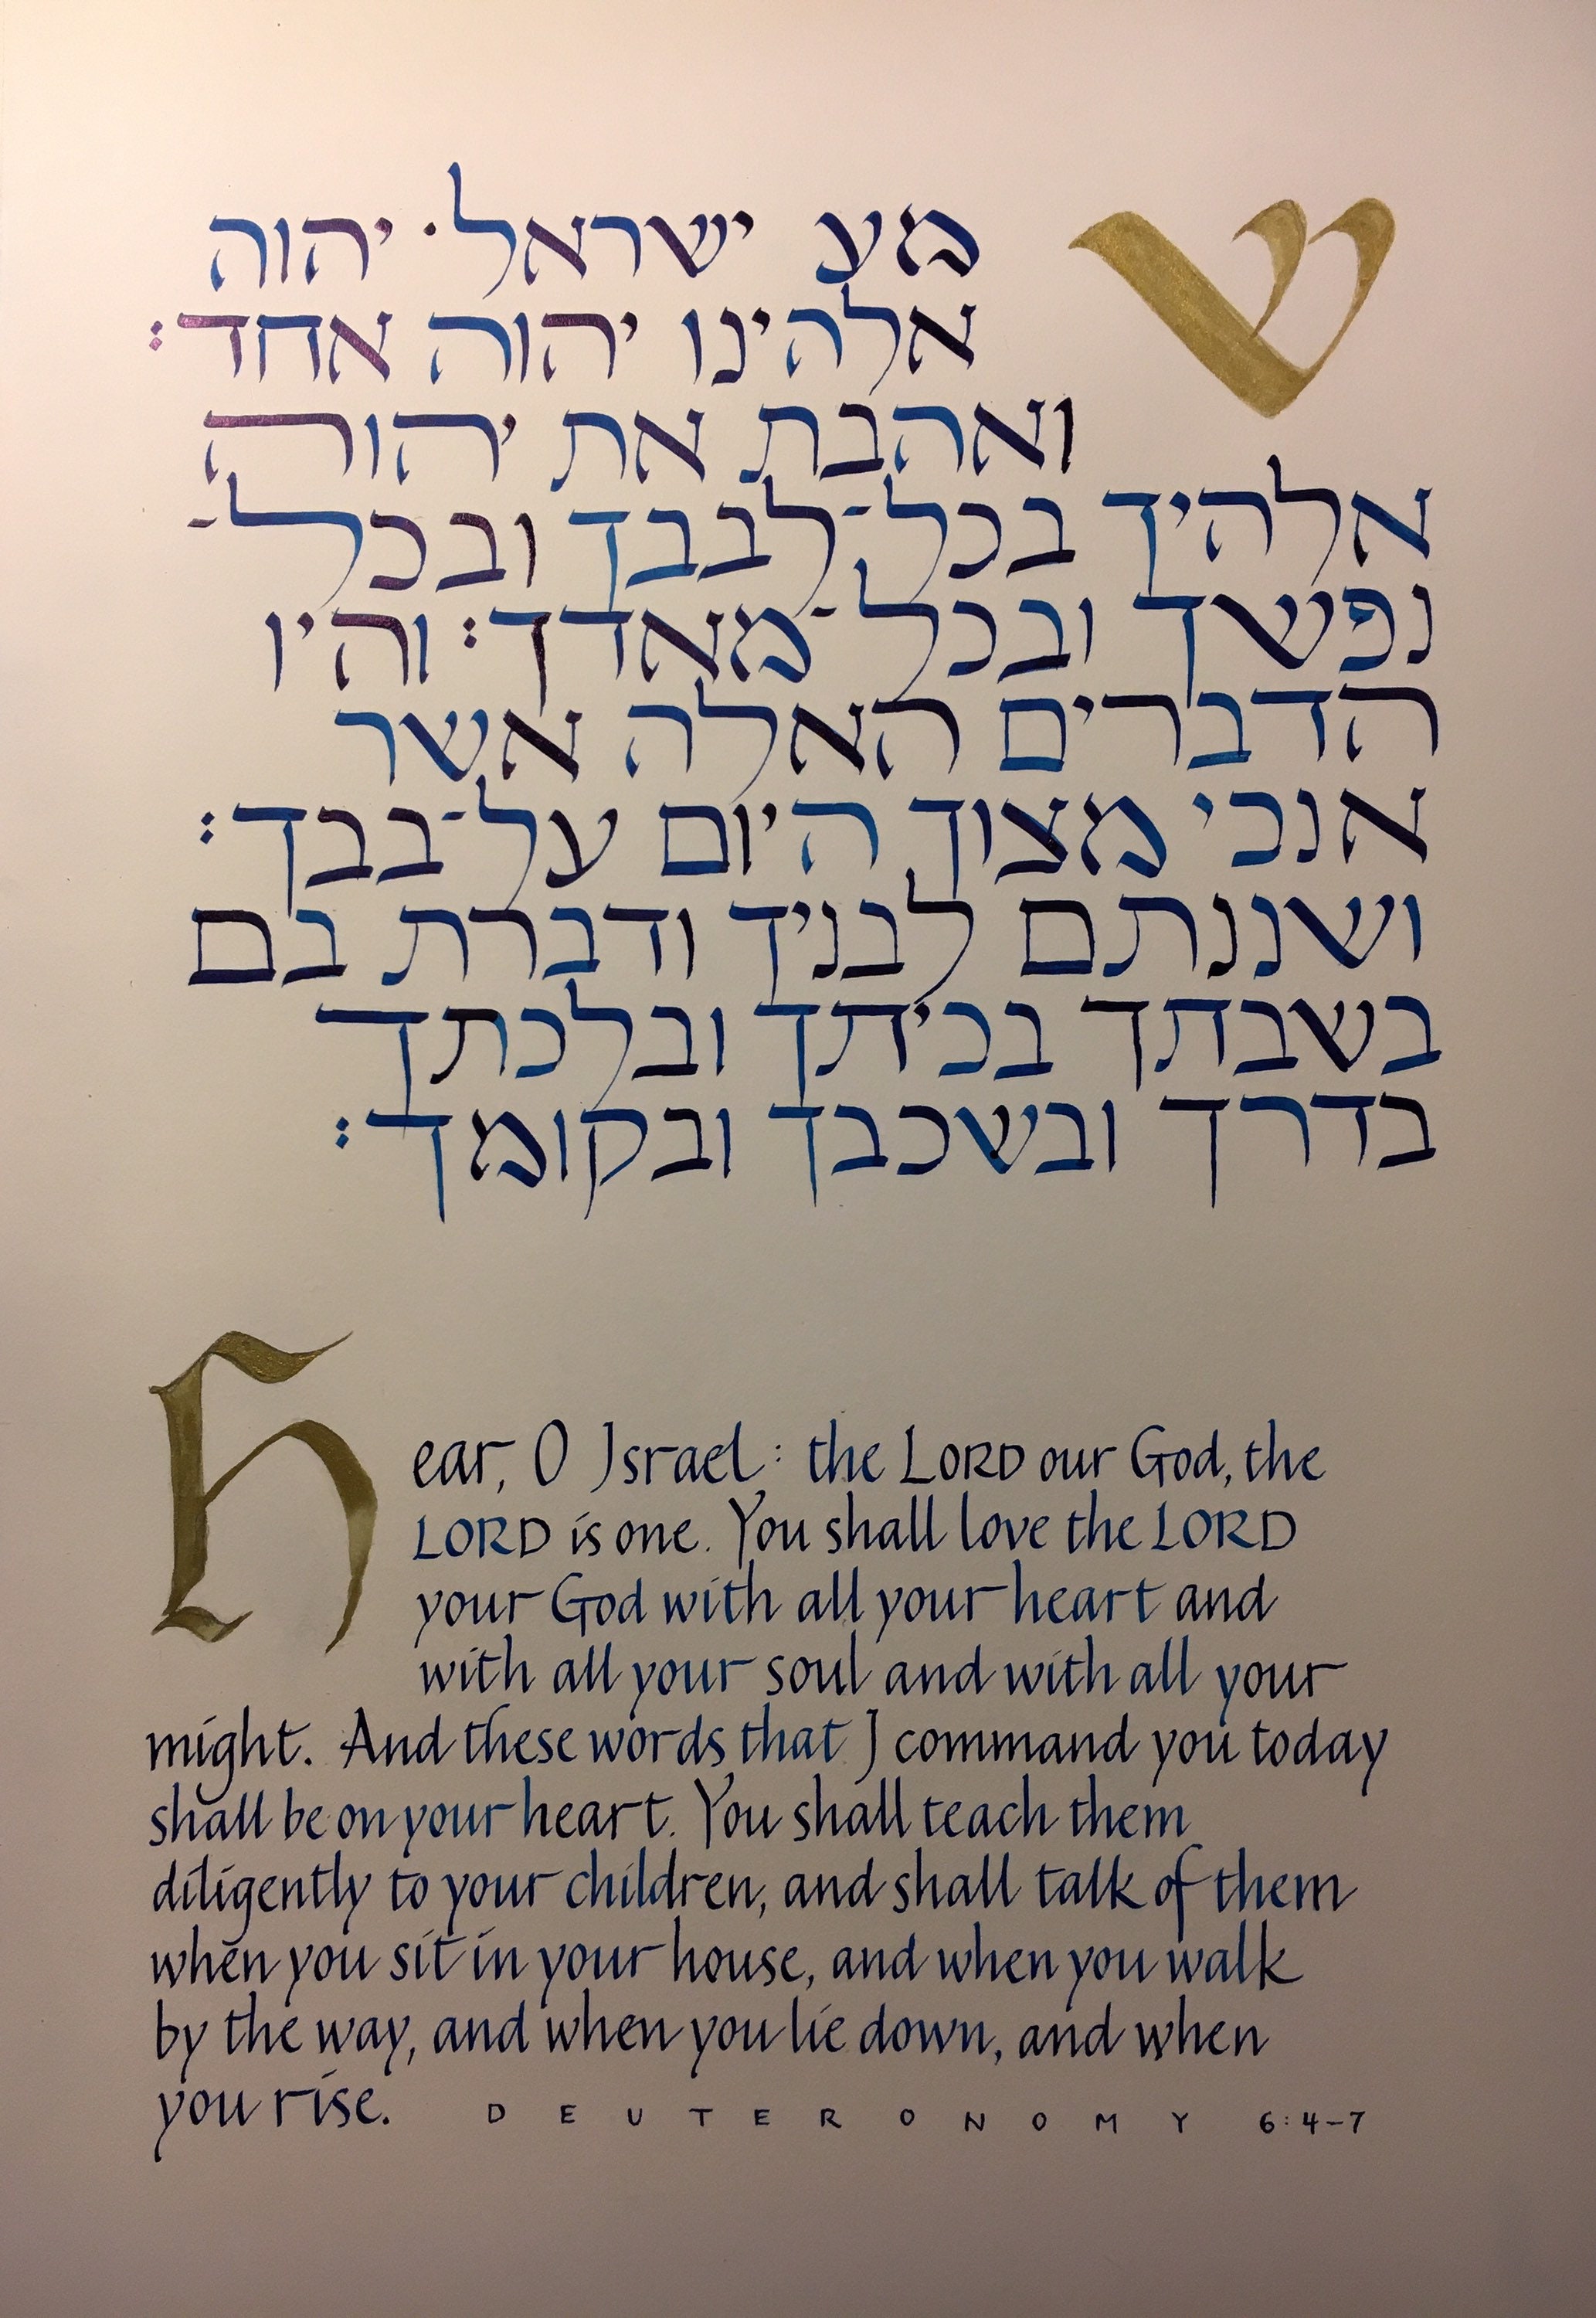 שמע ישראל· יהוה
אלהינו יהוה אחד:
ואהבת את יהוה
אלהיך בכל־לבבך ובכל־
נפשך ובכל־מאדך: והיו
הדברים האלה אשר
אנכי מצוך היום על־בבך:
ושננתם לבניך ודברת בם
בשבתך בכיתך ובלכתך
בדרך ובשכבך ובקומך:
Hear, O Israel: the LORD our God, the
LORD is one. You shall love the LORD
your God with all your heart and
with all your soul and with all your
might. And these words that I command you today
shall be on your heart. You shall teach them
diligently to your children, and shall talk of them
when you sit in your house, and when you walk
by the way, and when you lie down, and when
you rise. DEUTERONOMY 6:4-7